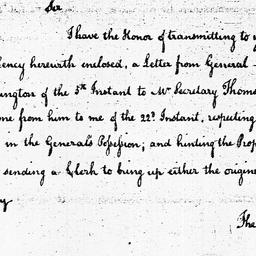 Sir
I have the Honor of transmitting to y
lency herewith enclosed, a Letter from General
ington of the 5th Instant to Mr Secretary Thoms
one from him to me of the 22d Instant, respecting
in the General's Possession; and hinting the Prop
sending a Clerk to bring up either the origin
y
The